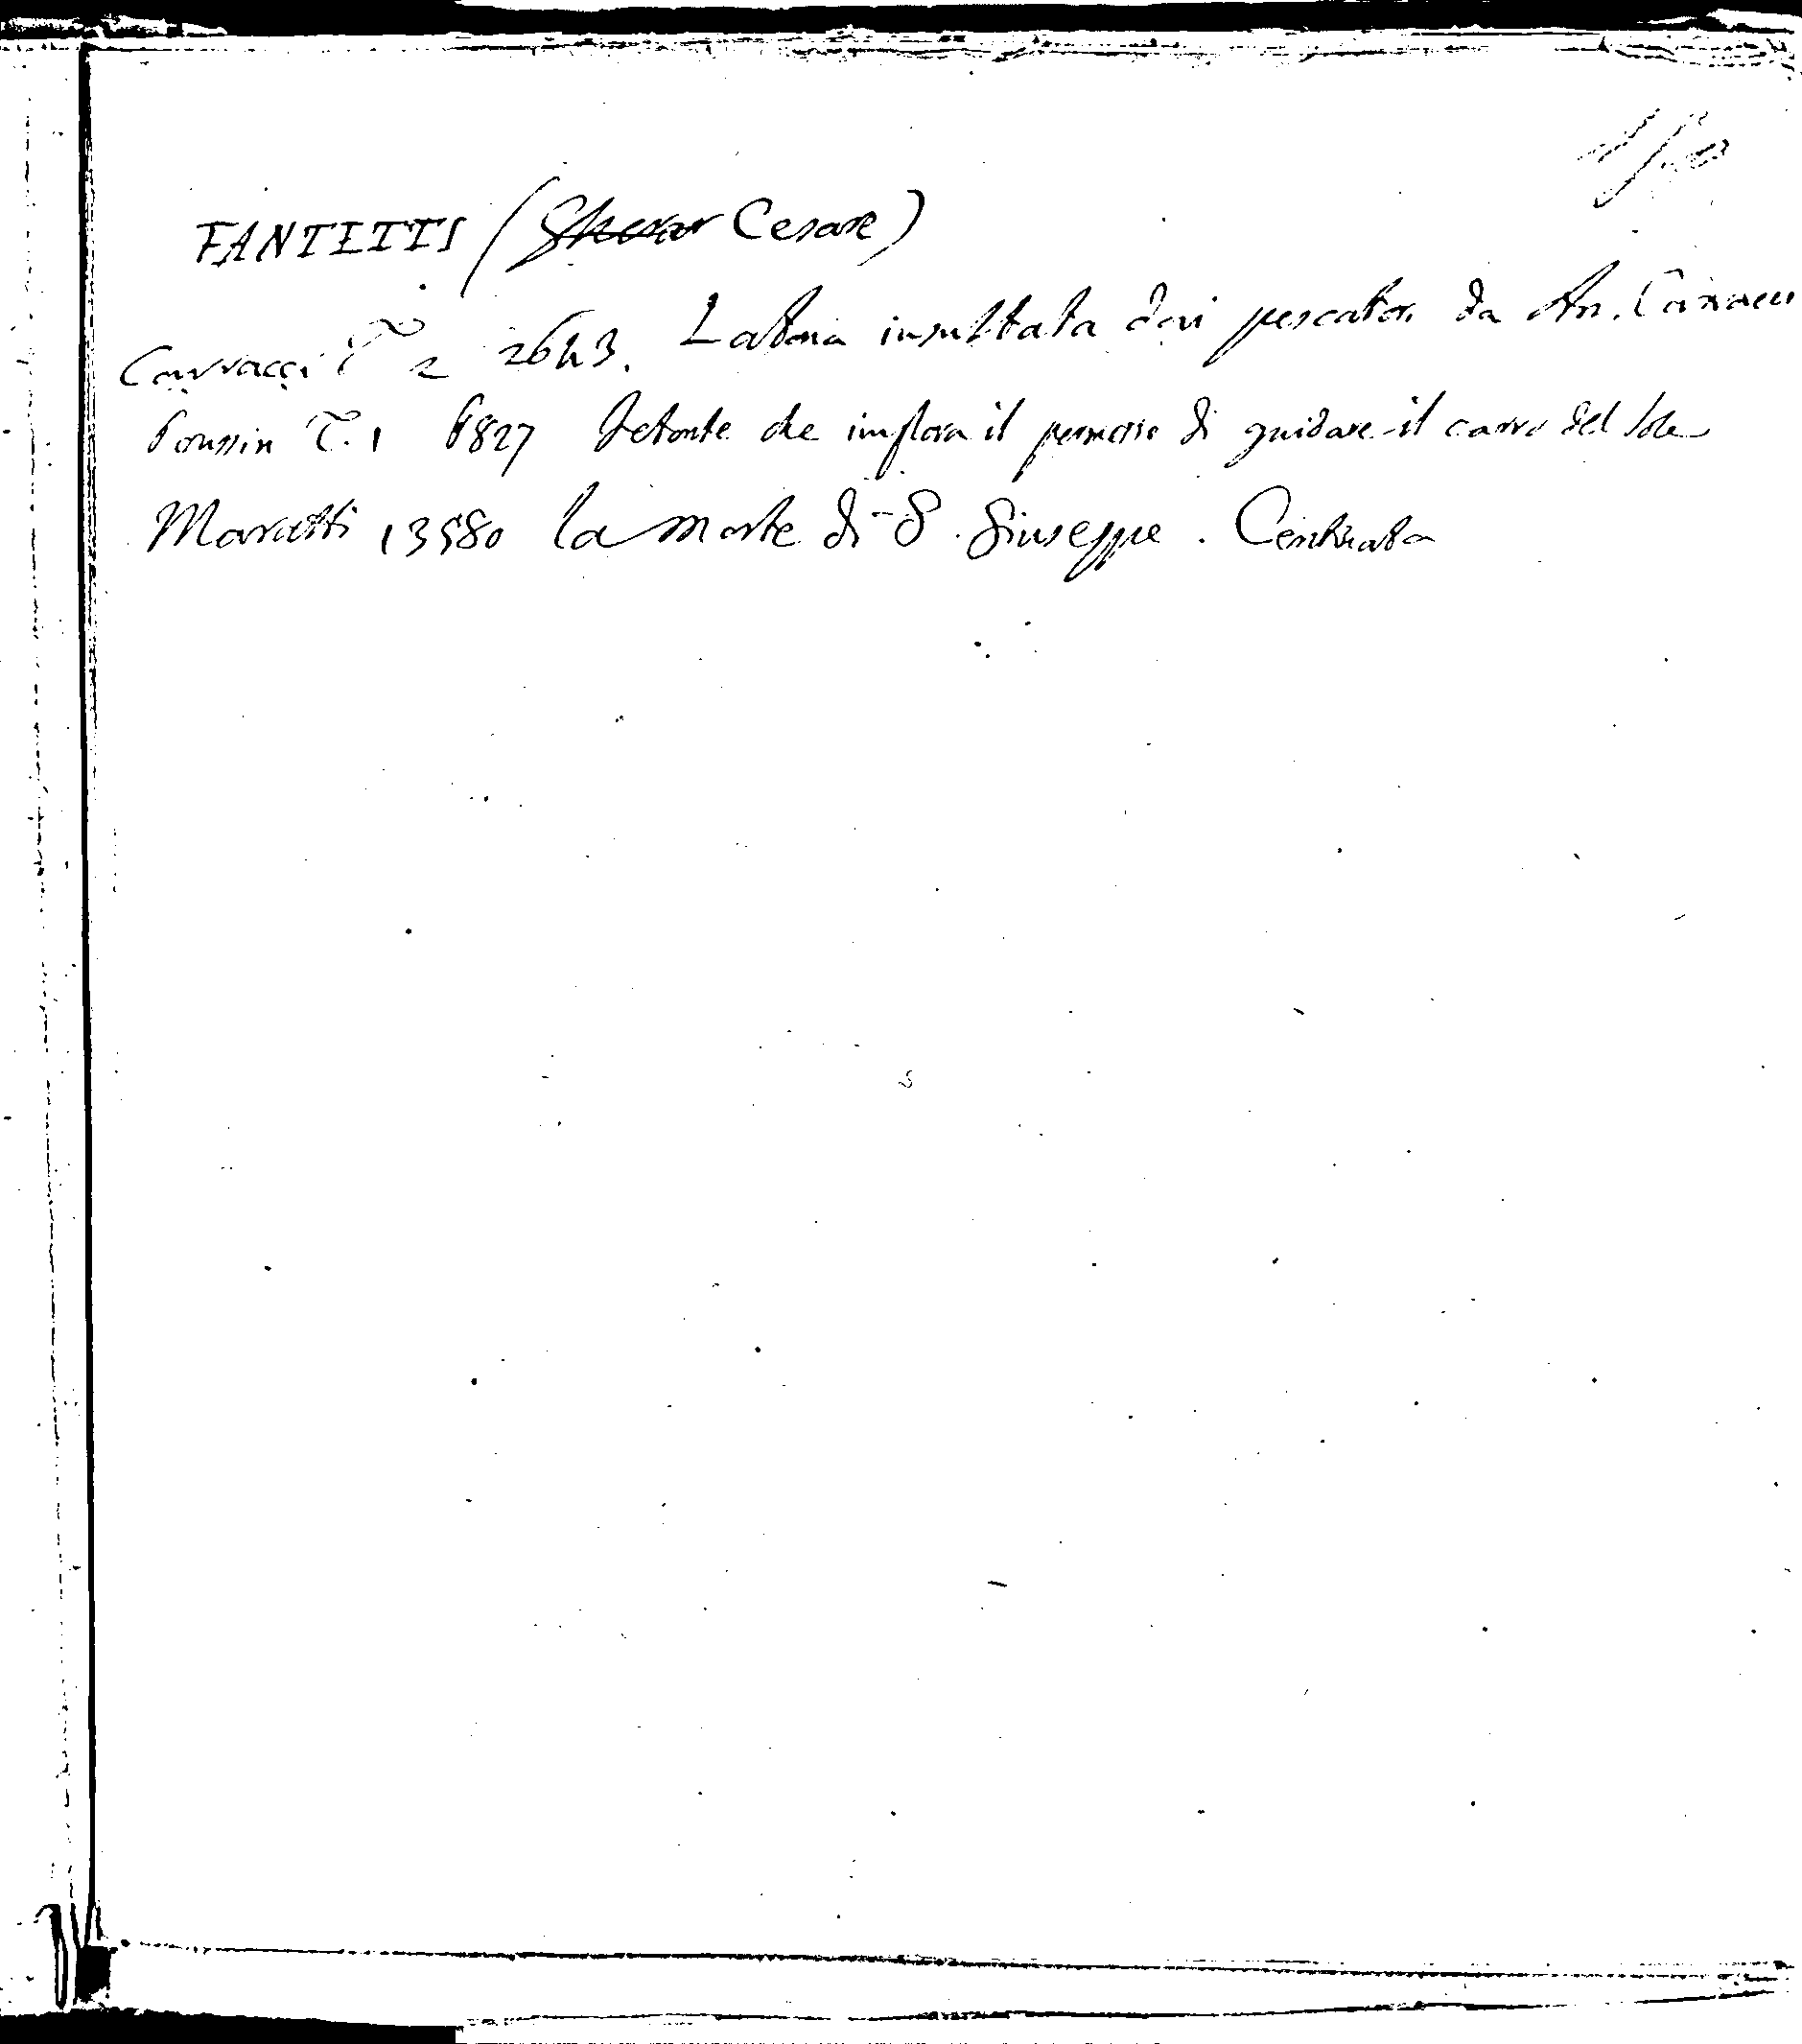 FANTETTI (Cesare)
Carracci T 2 2643. Latona insultata dai pescatori da An. Carracci
Poussin T. 1 6827 Fetonte che implora il permesso di guidare il carro del Sole
Maratti 13580 la morte di S. Giuseppe. Centinata